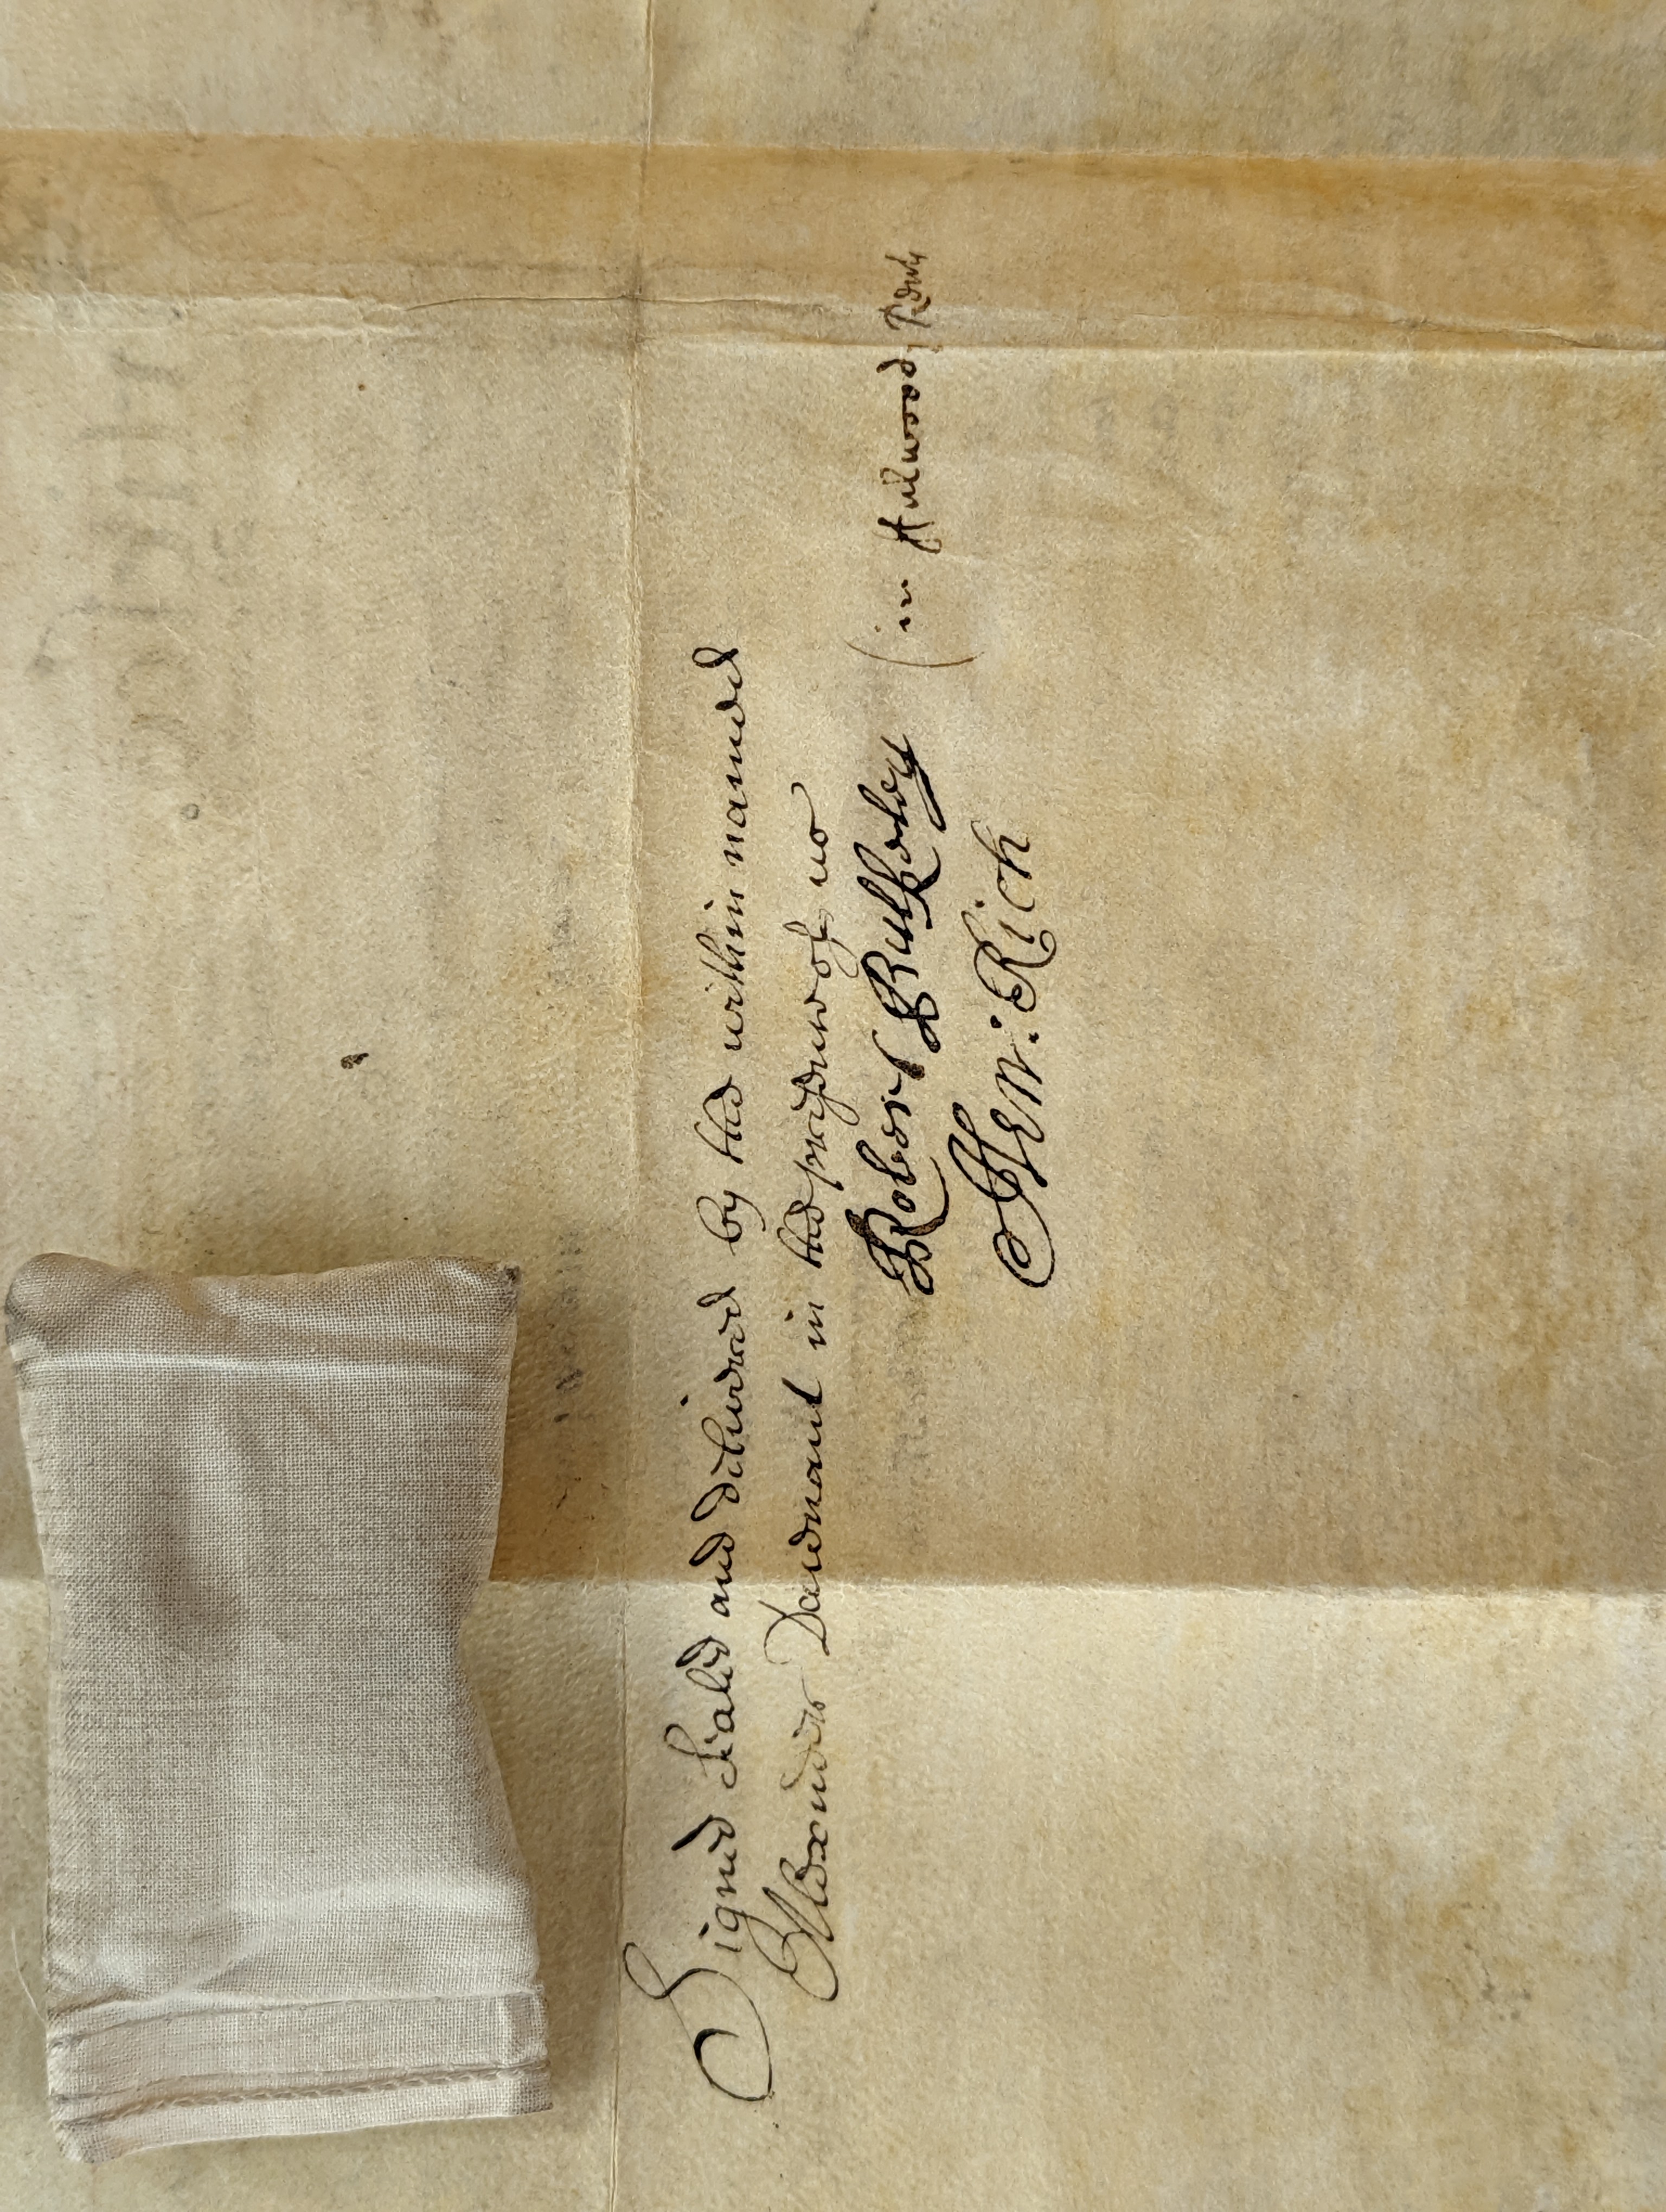 Signed Sealed and delivered by the within named
Alexander Davenant in the presence of us
Robert Butteley (in
Hen: Rich